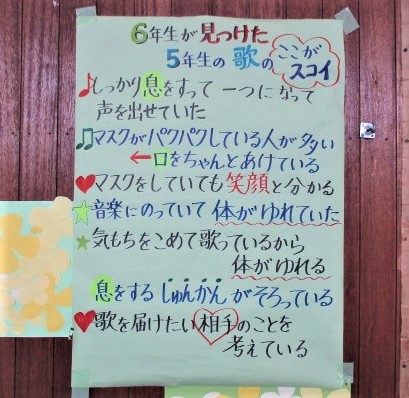 6年生が見つけた
5年生の歌の ここが
スコイ
♪しっかり息をすって 一つになって
声を出せていた
♫マスクがパクパクしている人が多い
←口をちゃんとあけている
♥マスクをしていても笑顔と分かる
☆音楽にのっていて 体がゆれていた
★気もちをこめて歌っているから
体がゆれる
息をする しゅんかん がそろっている
♥歌を届けたい相手のことを
考えている